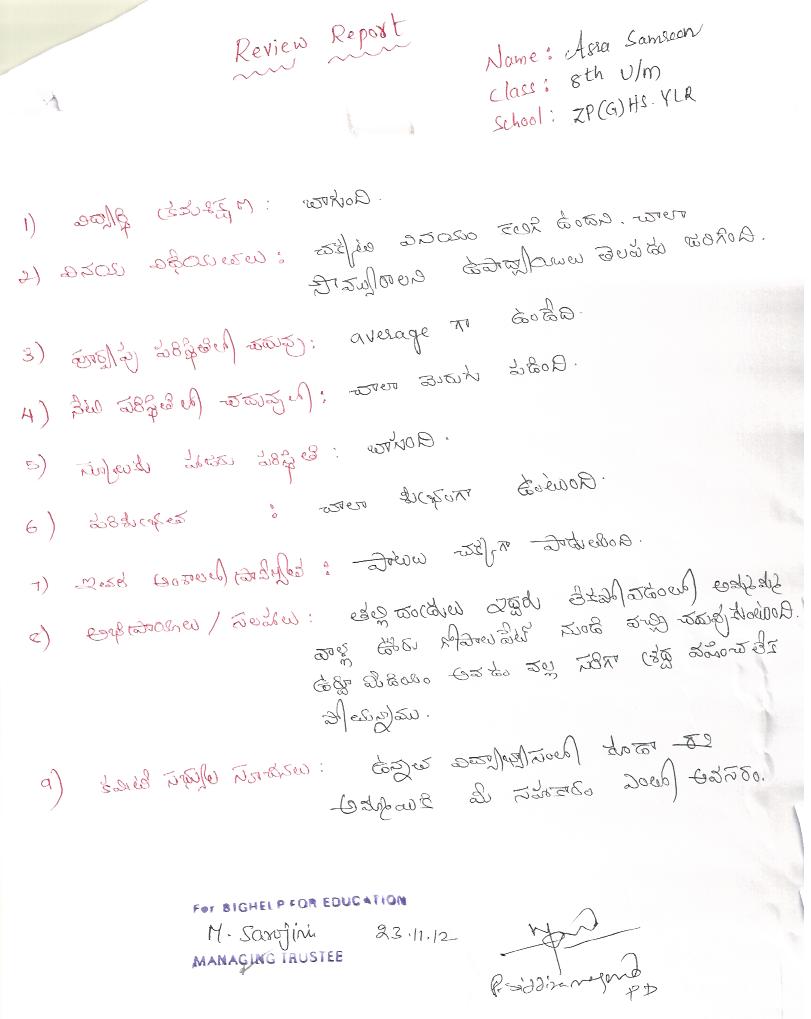 Review Report
Name : Asra Samreen
Class : 8th U/m
School : ZP(G)HS. YLR
1) విద్యార్థి క్రమశిక్షణ : బాగుంది.
2) వినయ విధేయతలు : చక్కటి వినయం కలిగి ఉందని. చాలా
సౌమ్యురాలని ఉపాధ్యాయులు తెలపడం జరిగింది.
3) పూర్వపు పరిస్థితిలో చదువు : average గా ఉండేది.
4) నేటి పరిస్థితిలో చదువులో : చాలా మెరుగు పడింది.
5) స్కూలుకు హాజరు పరిస్థితి : బాగుంది.
6) పరిశుభ్రత : చాలా శుభ్రంగా ఉంటుంది.
7) ఇతర అంశాలలో ప్రావీణ్యం : పాటలు చక్కగా పాడుతుంది.
8) అభిప్రాయాలు / సలహాలు : తల్లి దండ్రులు ఇద్దరు లేకపోవడంతో అమ్మమ్మ
వాళ్ల ఊరు గోపాలపేట్ నుండి వచ్చి చదువుకుంటుంది.
ఉర్దూ మీడియం అవడం వల్ల సరిగా శ్రద్ధ వహించలేక
పోయున్నాము.
9) కమిటీ సభ్యుల సూచనలు : ఉన్నత విద్యాభ్యాసంలో కూడా
అమ్మాయికి మీ సహకారం ఎంతో అవసరం.
For BIGHELP FOR EDUCATION
M. Sarojini 23.11.12
MANAGING TRUSTEE
PD